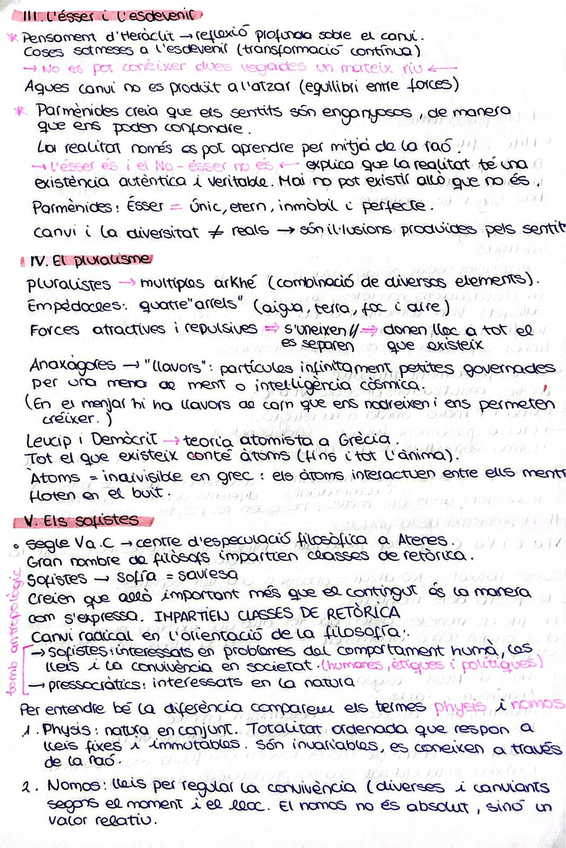 III. L'ésser i l'esdevenir
* Pensament d'Heràclit → reflexió profunda sobre el canvi.
Coses sotmeses a l'esdevenir (transformació contínua)
→ No es pot conèixer dues vegades un mateix riu ←
Aques canvi no es produït a l'atzar (equilibri entre forces)
* Parmènides creia que els sentits són enganyosos, de manera
que ens poden confondre.
La realitat només es pot aprendre per mitjà de la raó.
→ L'ésser és i el No-ésser no és ← explica que la realitat té una
existència autèntica i veritable. Mai no pot existir allò que no és.
Parmènides: Ésser = únic, etern, inmòbil i perfecte.
canvi i la diversitat ≠ reals → són il·lusions produides pels sentit
IV. El pluralisme
pluralistes → multiples arkhé (combinació de diversos elements).
Empèdocles: quatre "arrels" (aigua, terra, foc i aire)
Forces atractives i repulsives ⇒ s'uneixen // ⇒ donen lloc a tot el
es separen que existeix
Anaxàgores → "llavors": partícules infinitament petites governades
per una mena de ment o intel·ligència còsmica.
(En el menjar hi ha llavors de carn que ens nodreixen i ens permeten
créixer.)
Leucip i Demòcrit → teoria atomista a Grècia.
Tot el que existeix conté àtoms (fins i tot l'ànima).
Àtoms = indivisible en grec: els àtoms interactuen entre ells mentr
floten en el buit.
V. Els sofistes
• segle V a.C → centre d'especulació filosòfica a Atenes.
Gran nombre de filòsofs impartien classes de retòrica.
Sofistes → Sofía = saviesa
Creien que allò important més que el contingut és la manera
com s'expressa. IMPARTIEN CLASSES DE RETÒRICA
Canvi radical en l'orientació de la filosofia:
→ sofistes: interessats en problemes del comportament humà, las
lleis i la convivència en societat. (humanes, ètiques i polítiques)
→ pressocràtics: interessats en la natura
Per entendre bé la diferència comparem els termes physis i nomos
1. Physis: natura en conjunt. Totalitat ordenada que respon a
lleis fixes i immutables. Són invariables, es coneixen a través
de la raó.
2. Nomos: lleis per regular la convivència (diverses i canviants
segons el moment i el lloc. El nomos no és absolut, sinó un
valor relatiu.